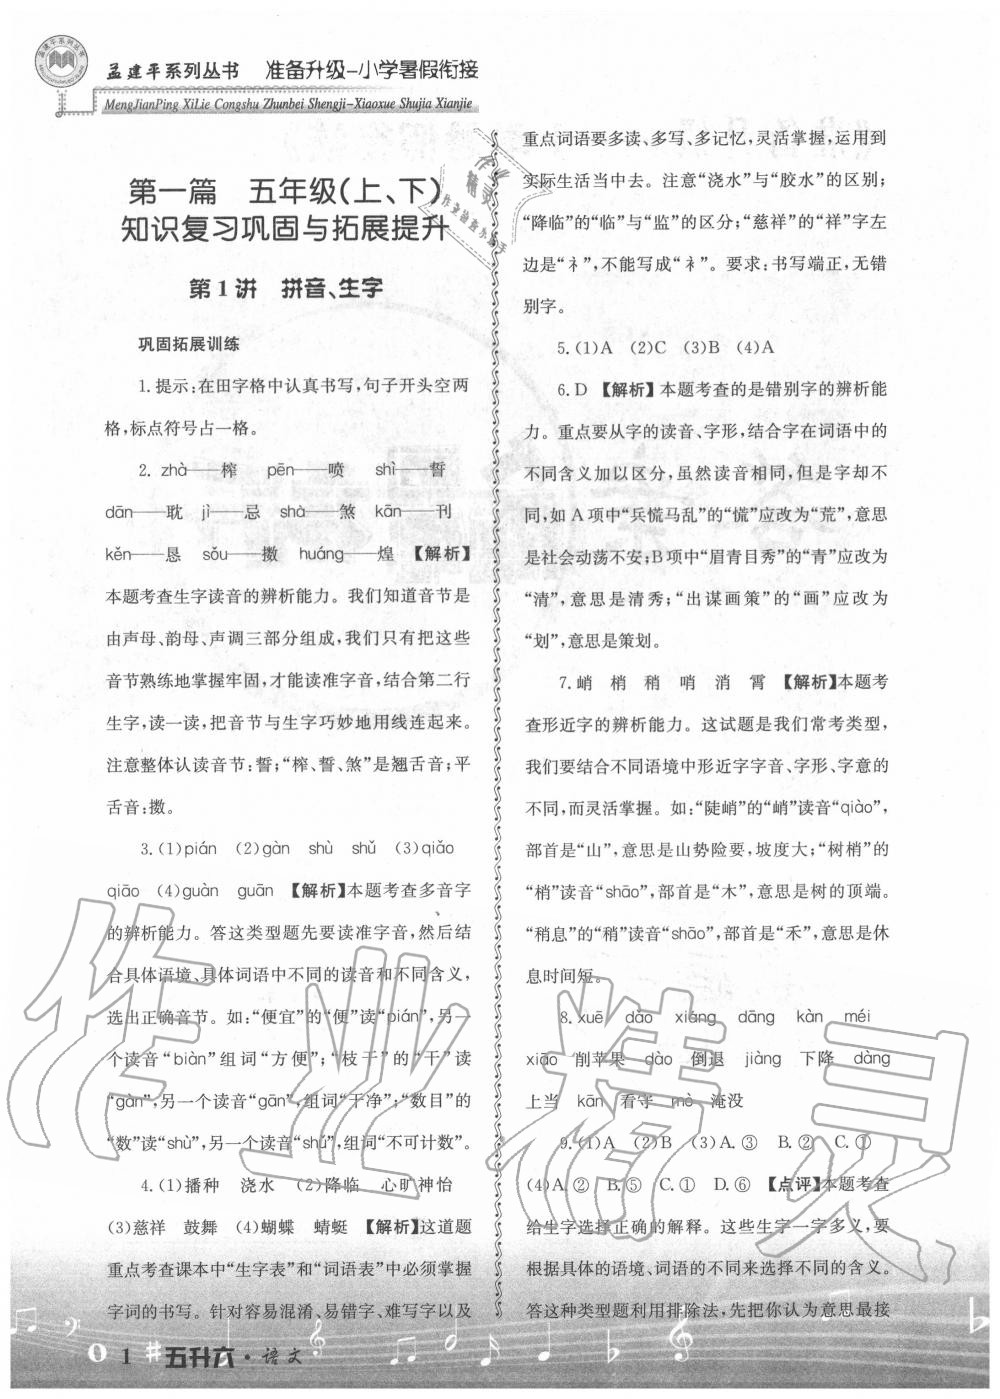 孟建平系列丛书 准备升级-小学暑假衔接
MengJianPing XiLie Congshu Zhunbei Shengji-Xiaoxue Shujia Xianjie
第一篇 五年级(上、下)
知识复习巩固与拓展提升
第1讲 拼音、生字
巩固拓展训练
1.提示:在田字格中认真书写,句子开头空两
格,标点符号占一格。
2. zhà——榨 pēn——喷 shì——誓
dān——耽 jì——忌 shà——煞 kān——刊
kěn——恳 sǒu——擞 huáng——煌 【解析】
本题考查生字读音的辨析能力。我们知道音节是
由声母、韵母、声调三部分组成,我们只有把这些
音节熟练地掌握牢固,才能读准字音,结合第二行
生字,读一读,把音节与生字巧妙地用线连起来。
注意整体认读音节:誓;“榨、誓、煞”是翘舌音;平
舌音:擞。
3.(1)pián (2)gàn shù shǔ (3)qiǎo
qiāo (4)guàn guān 【解析】本题考查多音字
的辨析能力。答这类型题先要读准字音,然后结
合具体语境、具体词语中不同的读音和不同含义,
选出正确音节。如:“便宜”的“便”读“pián”,另一
个读音“biàn”组词“方便”;“枝干”的“干”读
“gàn”,另一个读音“gān”,组词“干净”;“数目”的
“数”读“shù”,另一个读音“shǔ”,组词“不可计数”。
4.(1)播种 浇水 (2)降临 心旷神怡
(3)慈祥 鼓舞 (4)蝴蝶 蜻蜓 【解析】这道题
重点考查课本中“生字表”和“词语表”中必须掌握
字词的书写。针对容易混淆、易错字、难写字以及
重点词语要多读、多写、多记忆,灵活掌握,运用到
实际生活当中去。注意“浇水”与“胶水”的区别;
“降临”的“临”与“监”的区分;“慈祥”的“祥”字左
边是“礻”,不能写成“衤”。要求:书写端正,无错
别字。
5.(1)A (2)C (3)B (4)A
6.D 【解析】本题考查的是错别字的辨析能
力。重点要从字的读音、字形,结合字在词语中的
不同含义加以区分,虽然读音相同,但是字却不
同,如A项中“兵慌马乱”的“慌”应改为“荒”,意思
是社会动荡不安;B项中“眉青目秀”的“青”应改为
“清”,意思是清秀;“出谋画策”的“画”应改为
“划”,意思是策划。
7.峭 梢 稍 哨 消 霄 【解析】本题考
查形近字的辨析能力。这试题是我们常考类型,
我们要结合不同语境中形近字字音、字形、字意的
不同,而灵活掌握。如:“陡峭”的“峭”读音“qiào”,
部首是“山”,意思是山势险要,坡度大;“树梢”的
“梢”读音“shāo”,部首是“木”,意思是树的顶端。
“稍息”的“稍”读音“shāo”,部首是“禾”,意思是休
息时间短。
8.xuē dǎo xiáng dāng kàn méi
xiāo 削苹果 dào 倒退 jiàng 下降 dàng
上当 kān 看守 mò 淹没
9.(1)A (2)B (3)A.③ B.② C.①
(4)A.② B.⑤ C.① D.⑥ 【点评】本题考查
给生字选择正确的解释。这些生字一字多义,要
根据具体的语境、词语的不同来选择不同的含义。
答这种类型题利用排除法,先把你认为意思最接
1 五升六·语文
作业精灵